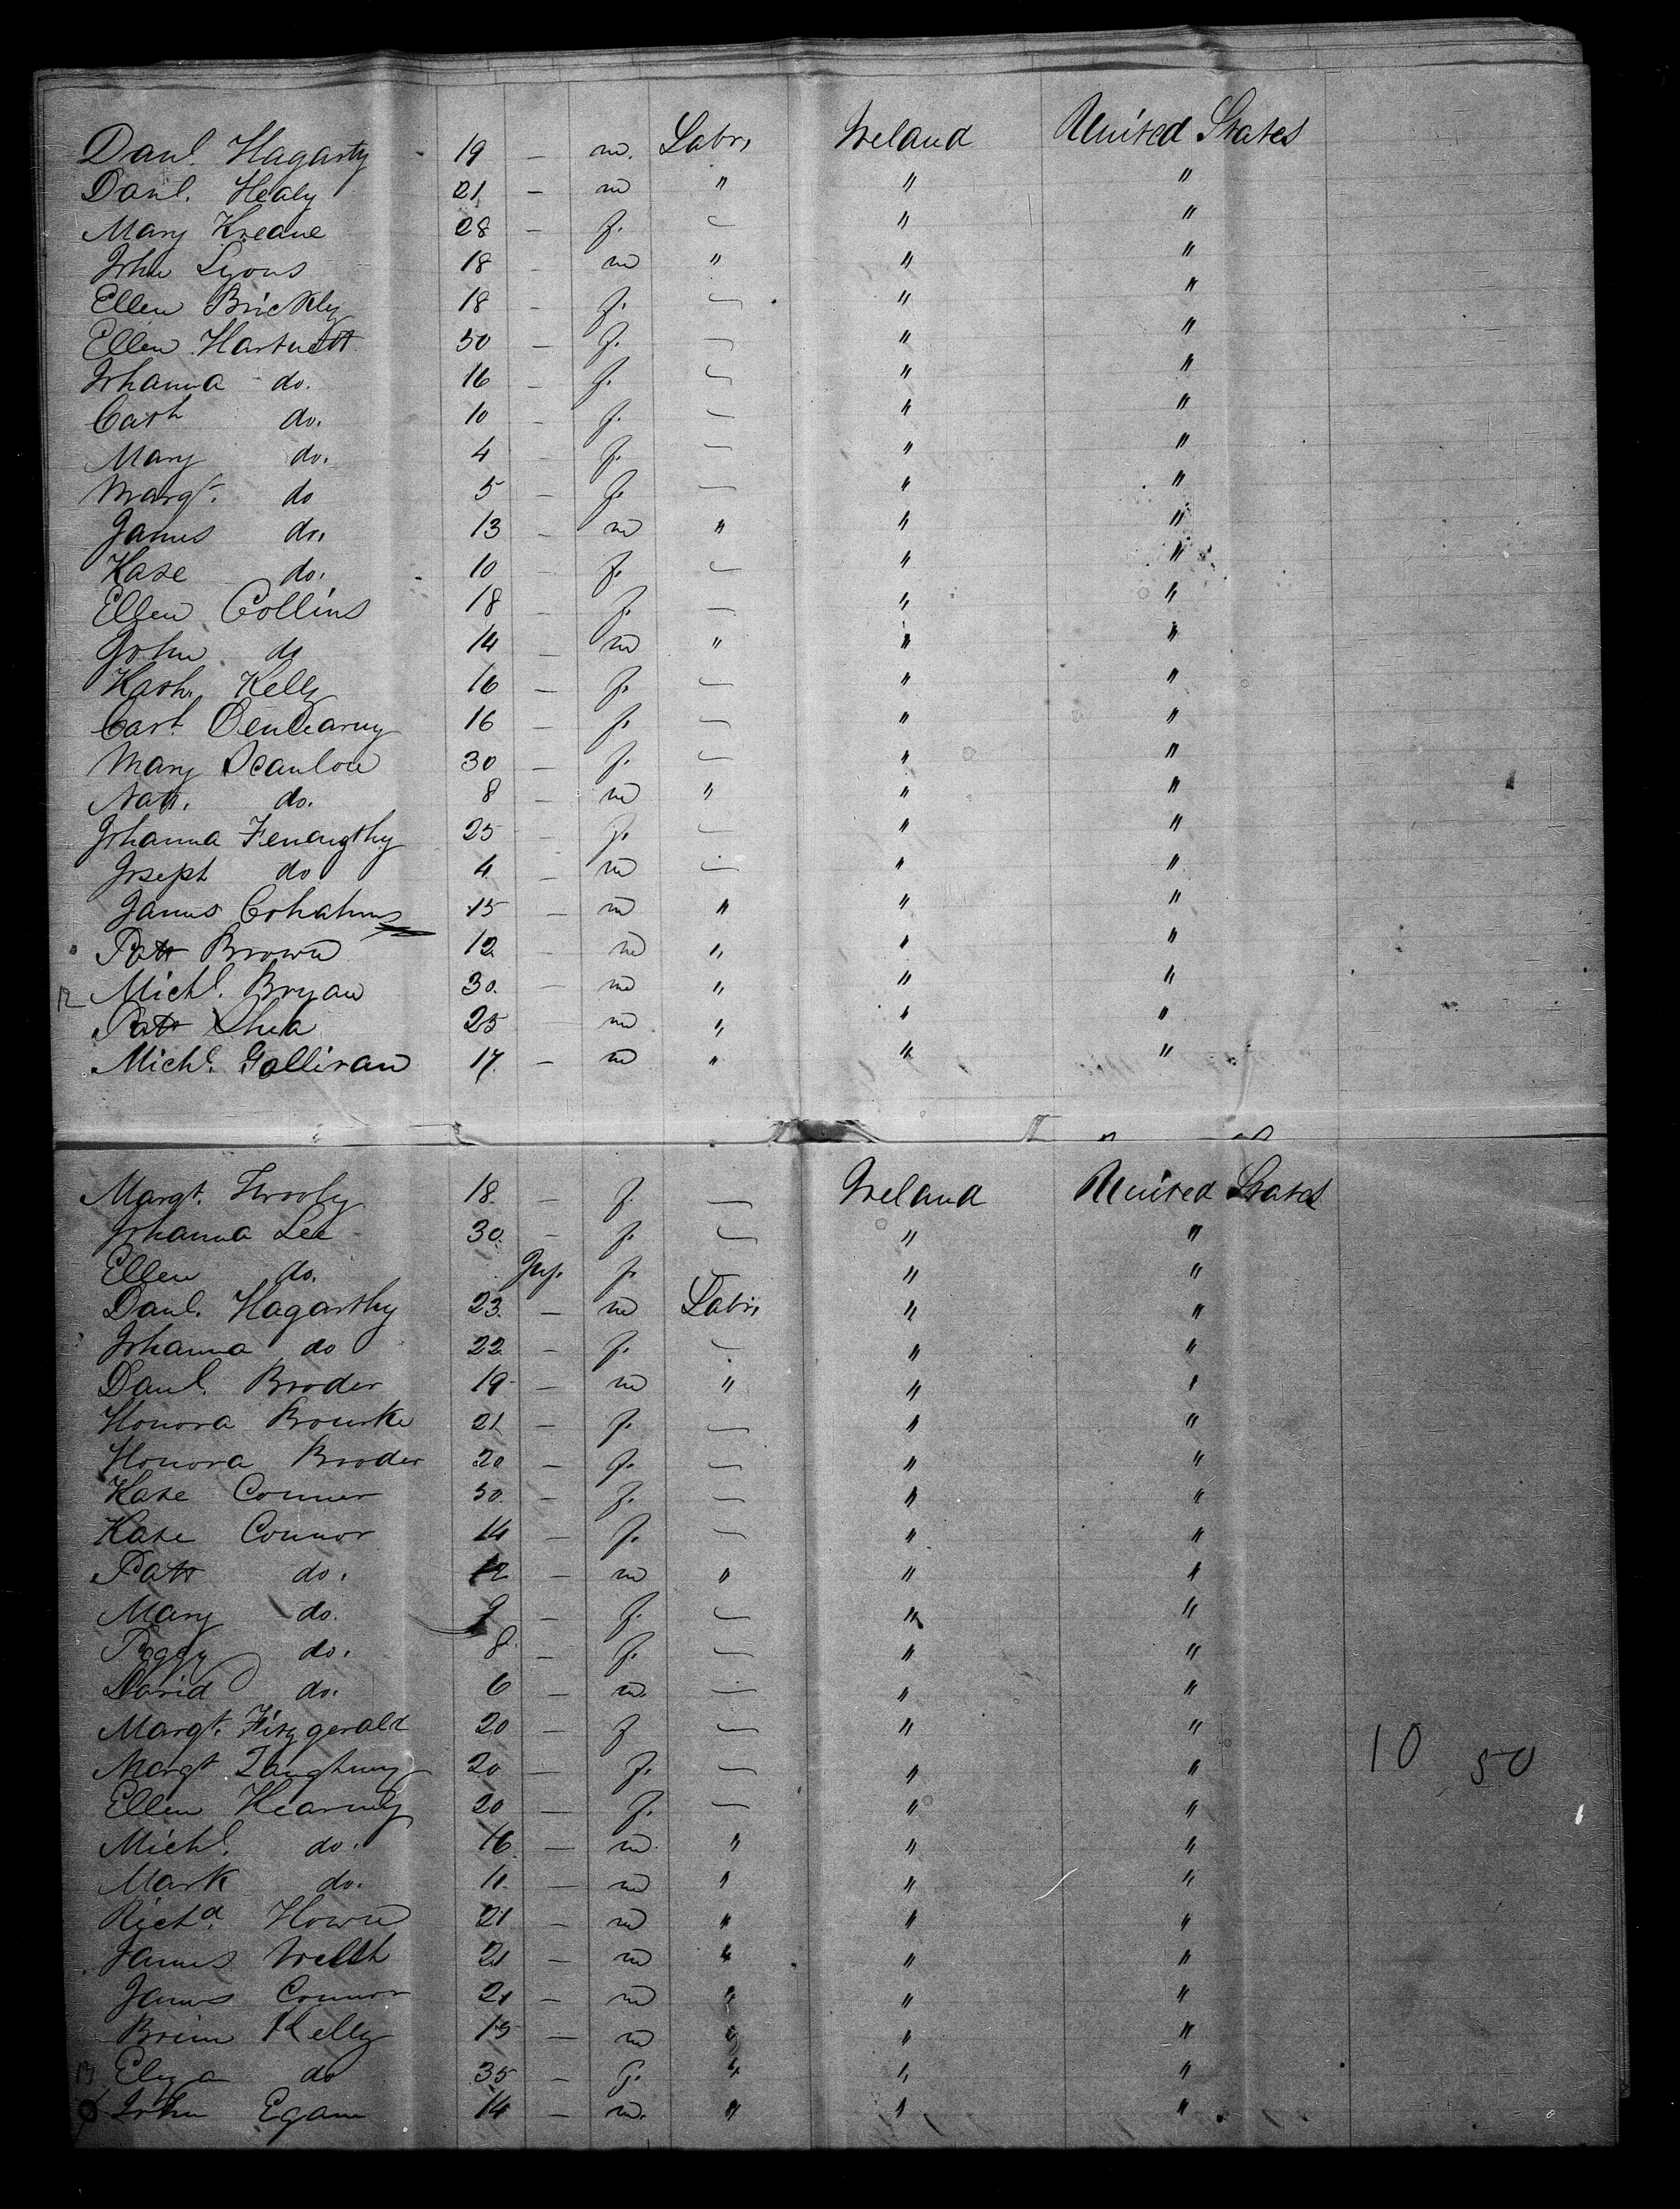 Danl. Hagarty 19 — m. Labr, Ireland United States
Danl. Healy 21 — m " " "
Mary Kreane 28 — f. — " "
John Lyons 18 — m " " "
Ellen Brickly 18 — f. — " "
Ellen Hartnett 50 — f. — " "
Johanna do. 16 — f. — " "
Cath do. 10 — f. — " "
Mary do. 4 — f. — " "
Margt. do 5 — f. — " "
James do. 13 — m " " "
Kate do. 10 — f. — " "
Ellen Collins 18 — f. — " "
John do 14 — m " " "
Kath. Kelly 16 — f. — " "
Cart. 16 — f. — " "
Mary Scanlon 30 — f. — " "
do. 8 — m " " "
Johanna 25 f. — " "
Joseph do 4 — m — " "
James 15 — m " " "
Patk Brown 12 m " " "
12 Michl. Bryan 30. — m " " "
Patk Shea 25 m " " "
Michl. Gallivan 17. — m " " "
Margt. 18 — f. — Ireland United States
Johanna Lee 30 — f. — " "
Ellen do. Inf. f. — " "
Danl. Hagarthy 23. — m Labr, " "
Johanna do 22 — f. — " "
Danl. Broder 19 — m " " "
Honora Bourke 21 — f. — " "
Honora Broder 20 — f. — " "
Kate Conner 50. — f. — " "
Kate Connor 14 — f. — " "
Patk do. 12 — m " " "
Mary do. 9 — f. — " "
Peggy do. 8 — f. — " "
David do. 6 — m. — " "
Margt. Fitzgerald 20 — f — " "
Margt 20 — f. — " " 10 50
Ellen Kearney 20 — f. — " "
Michl. do. 16 — m. " " "
Mark do. 11 — m " " "
Richd. Hown 21 — m " " "
James Welsh 21 — m " " "
James Connor 21 — m " " "
Kelly 15 — m " " "
13 Eliza do 35 — f. " " "
John Egan 14 — m. " " "